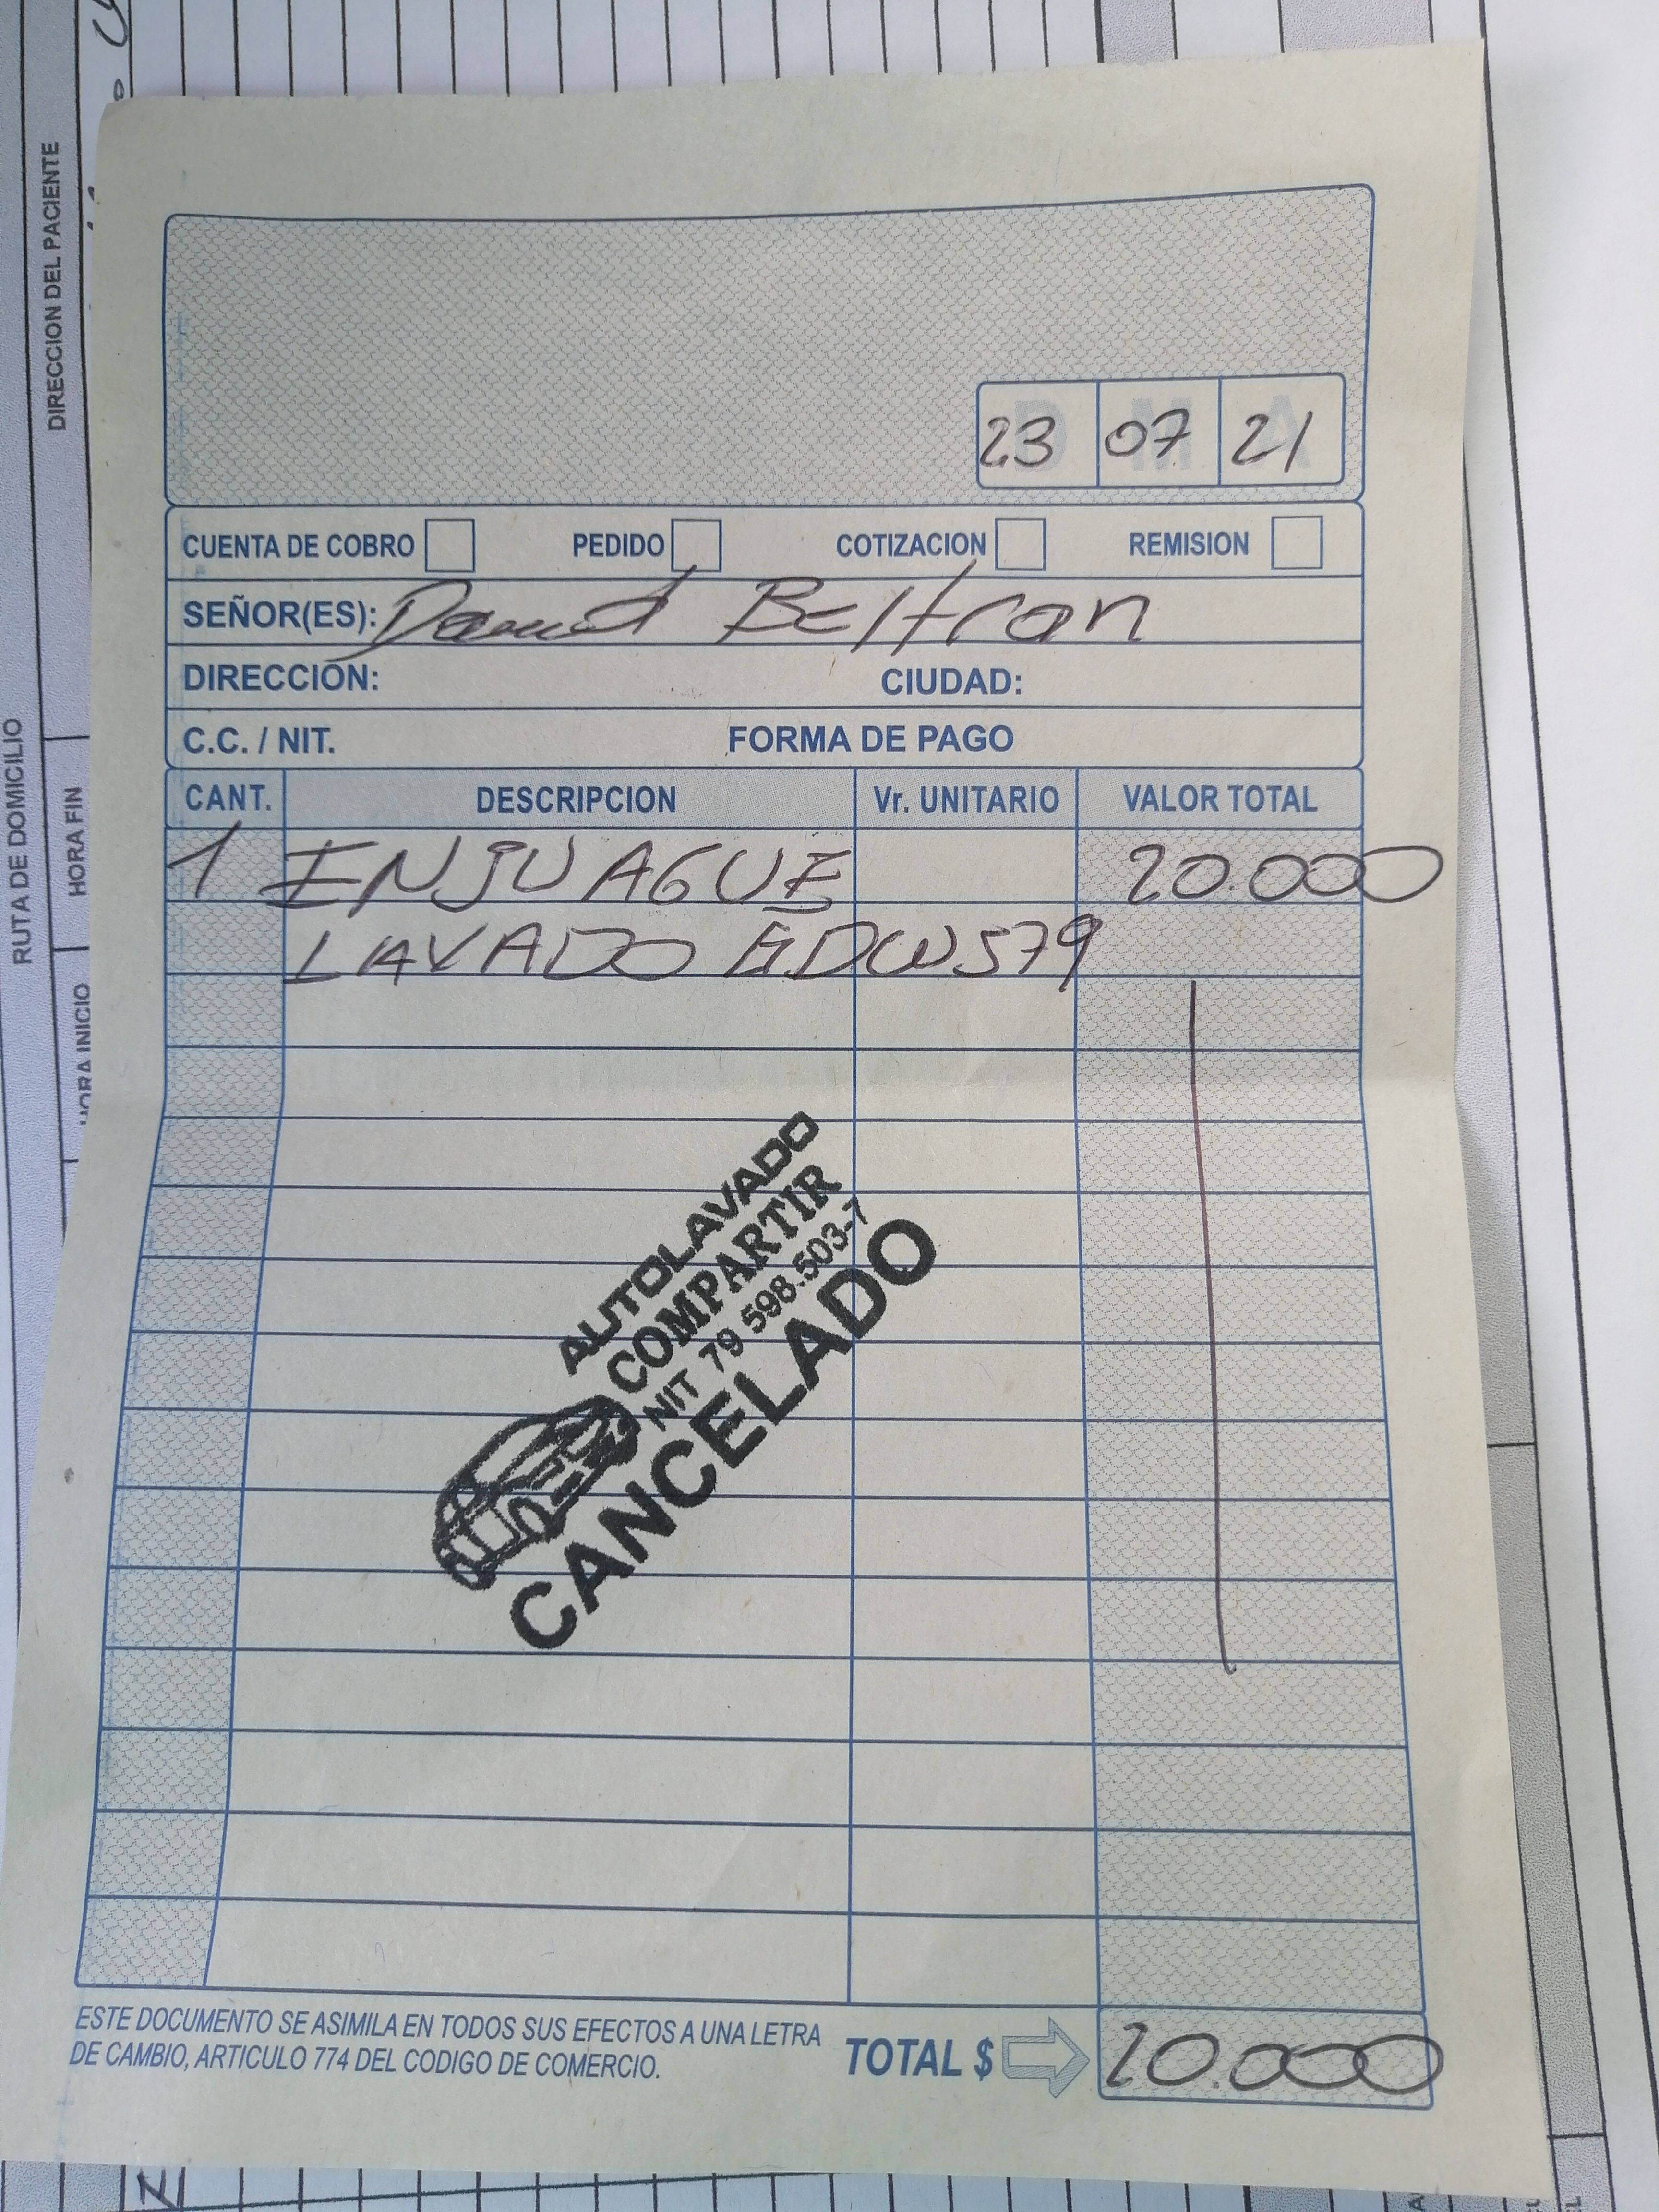 DIRECCION DEL PACIENTE
RUTA DE DOMICILIO
HORA FIN
HORA INICIO
D M A
23 07 21
CUENTA DE COBRO PEDIDO COTIZACION REMISION
SEÑOR(ES): David Beltran
DIRECCIÓN: CIUDAD:
C.C. / NIT. FORMA DE PAGO
CANT. DESCRIPCION Vr. UNITARIO VALOR TOTAL
1 ENJUAGUE 20.000
LAVADO
AUTOLAVADO
COMPARTIR
NIT 79 598.503-7
CANCELADO
ESTE DOCUMENTO SE ASIMILA EN TODOS SUS EFECTOS A UNA LETRA
DE CAMBIO, ARTICULO 774 DEL CODIGO DE COMERCIO.
TOTAL $ 20.000